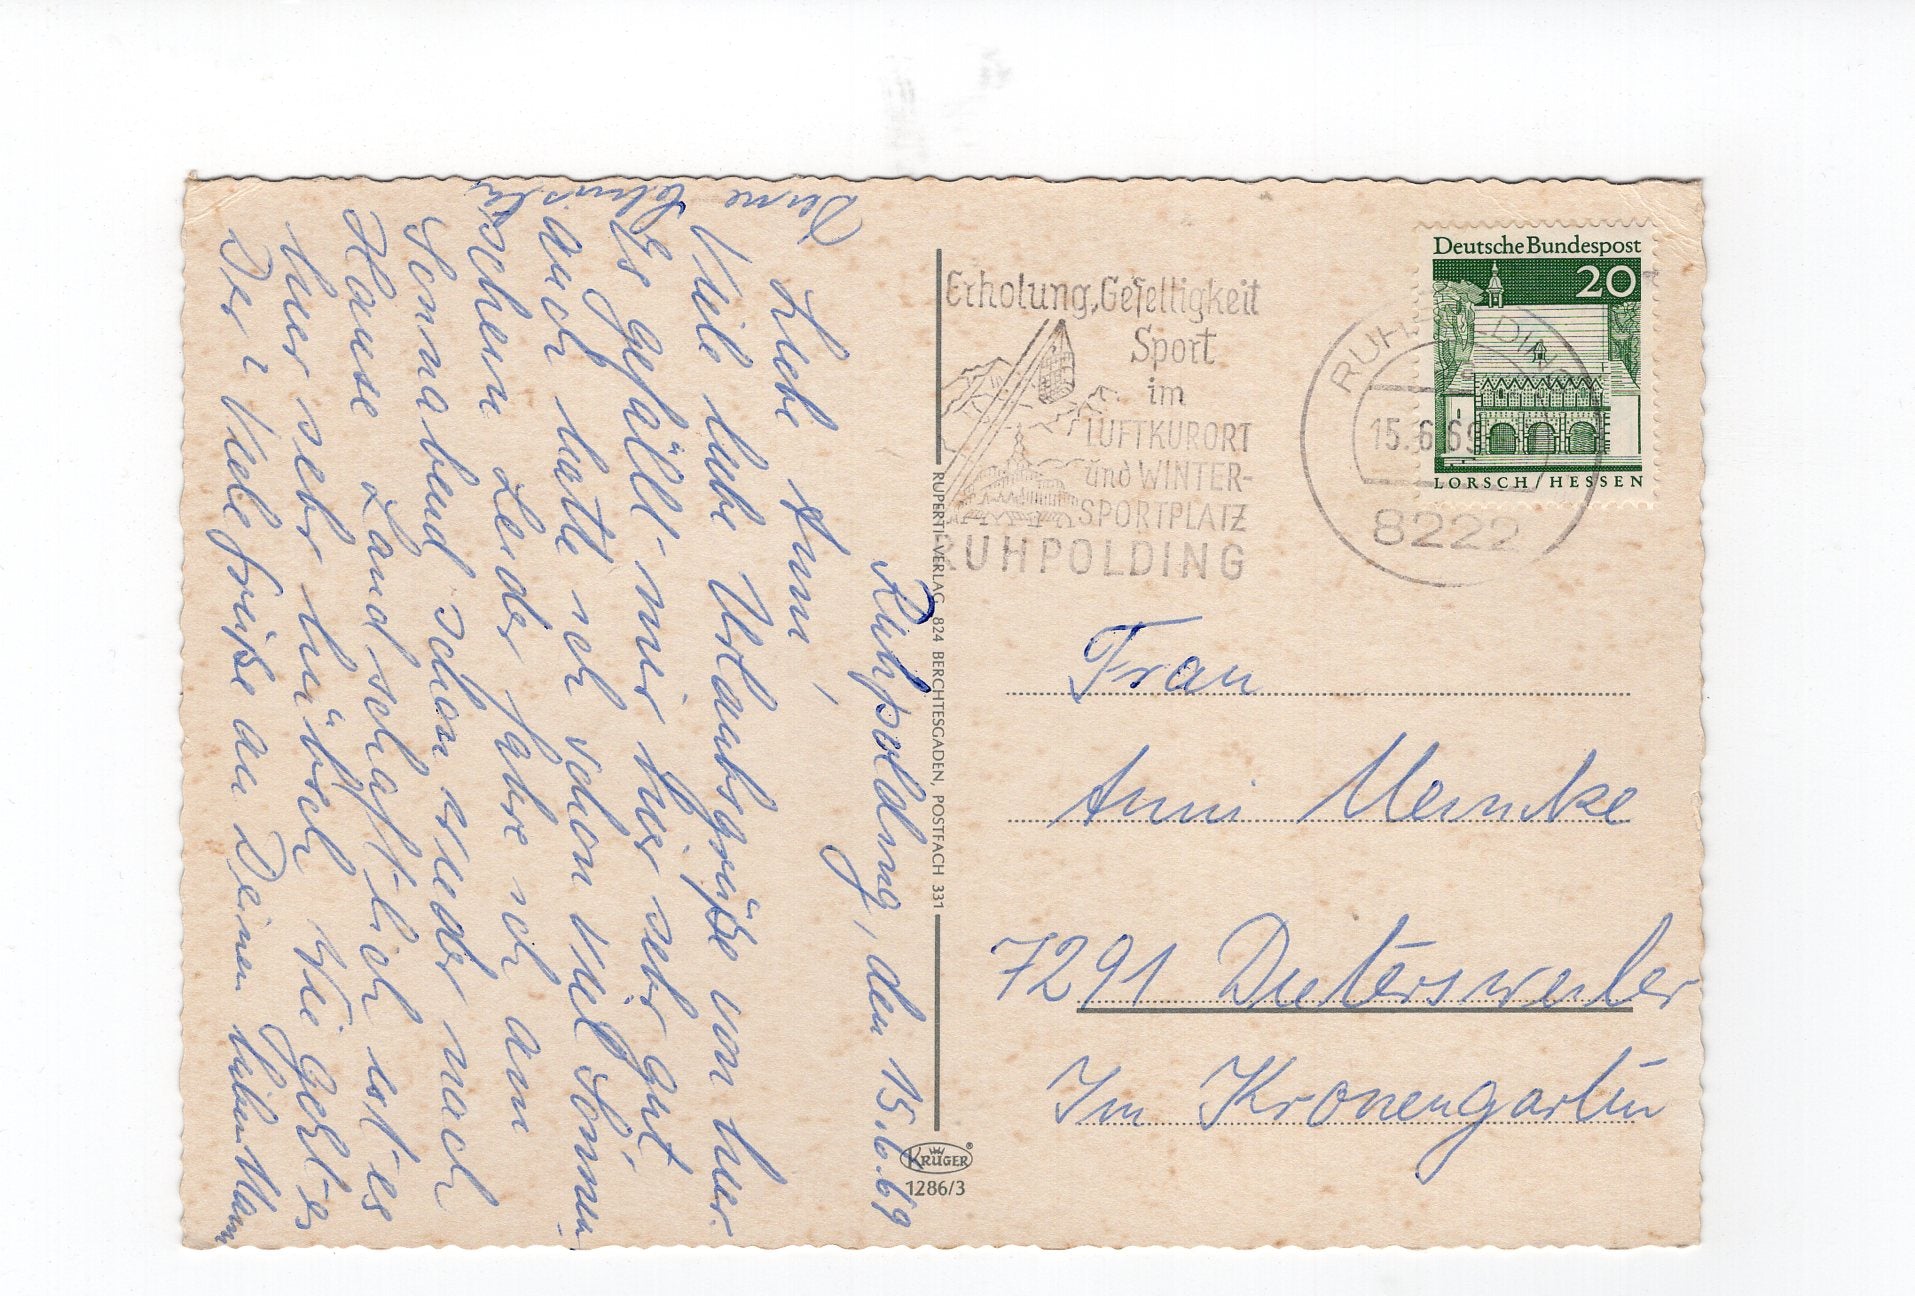 Ruhpolding, den 15.6.69
Liebe Anni,
Viele liebe Urlaubsgrüße von hier.
Es gefällt mir hier sehr gut,
auch hatte ich schon viel Sonnen-
schein. Leider fahre ich am
Sonnabend schon wieder nach
Hause. Landschaftlich ist es
hier sehr hübsch. Wie geht's
Dir? Viele Grüße an Deinen lieben Mann
Deine
Erholung, Geselligkeit
Sport
im
LUFTKURORT
und WINTER-
SPORTPLATZ
RUHPOLDING
RUHPOLDING
15.6.69
8222
Deutsche Bundespost
20
LORSCH/HESSEN
RUPERTI-VERLAG, 824 BERCHTESGADEN, POSTFACH 331
Frau
Anni Meincke
7291 Dietersweiler
Im Kronengarten
KRÜGER®
1286/3